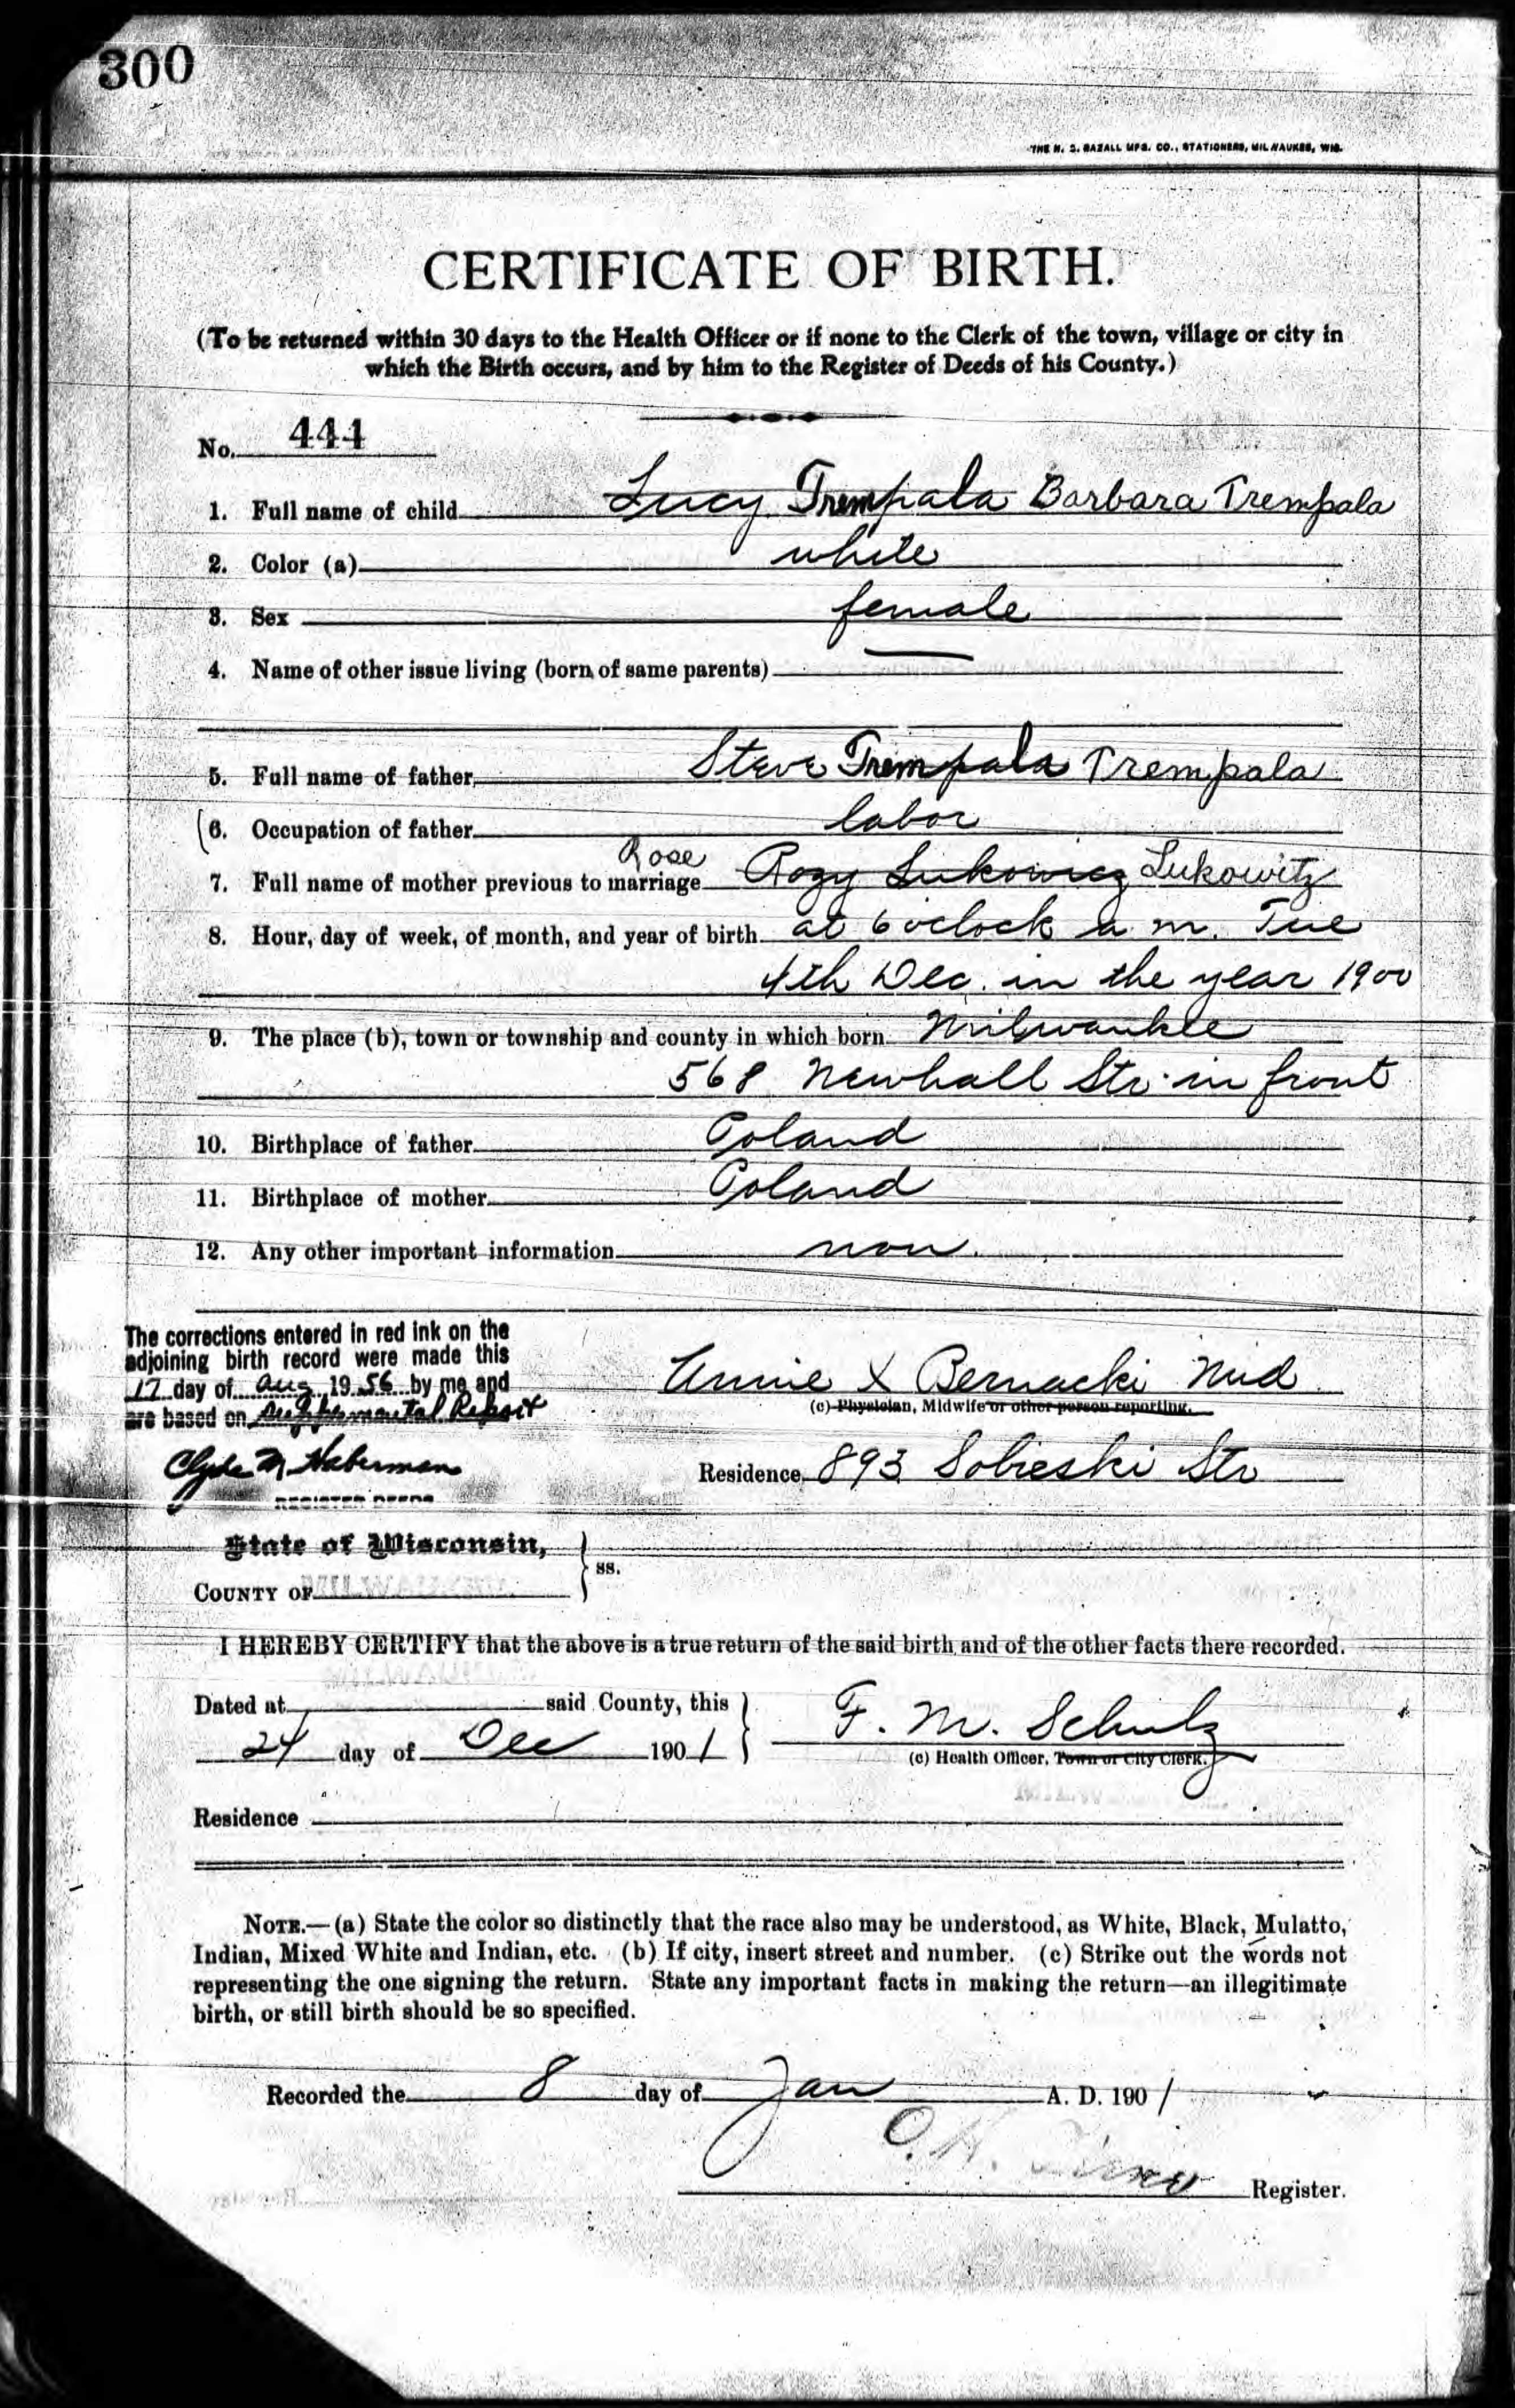 300
THE H. G. RAZALL MFG. CO., STATIONERS, MILWAUKEE, WIS.
CERTIFICATE OF BIRTH.
(To be returned within 30 days to the Health Officer or if none to the Clerk of the town, village or city in
which the Birth occurs, and by him to the Register of Deeds of his County.)
No. 444
1. Full name of child Lucy Trempala Barbara Trempala
2. Color (a) white
3. Sex female
4. Name of other issue living (born of same parents) —
5. Full name of father Steve Trempala Trempala
6. Occupation of father labor
Rose
7. Full name of mother previous to marriage Rozy Lukowicz Lukowitz
8. Hour, day of week, of month, and year of birth at 6 oclock a m. Tue
4th Dec. in the year 1900
9. The place (b), town or township and county in which born Milwaukee
568 Newhall Str. in front
10. Birthplace of father Poland
11. Birthplace of mother Poland
12. Any other important information non.
The corrections entered in red ink on the
adjoining birth record were made this
17 day of Aug 1956 by me and
are based on Supplemental Report
Clyde M Haberman
REGISTER DEEDS
Annie X Bernacki Mid
(c) Physician, Midwife or other person reporting.
Residence 893 Sobieski Str
State of Wisconsin,
COUNTY OF
ss.
I HEREBY CERTIFY that the above is a true return of the said birth and of the other facts there recorded.
Dated at said County, this
24 day of Dec 1901
F. M. Schulz
(c) Health Officer, Town or City Clerk.
Residence
NOTE.—(a) State the color so distinctly that the race also may be understood, as White, Black, Mulatto,
Indian, Mixed White and Indian, etc. (b) If city, insert street and number. (c) Strike out the words not
representing the one signing the return. State any important facts in making the return—an illegitimate
birth, or still birth should be so specified.
Recorded the 8 day of Jan A. D. 1901
O. H.
Register.